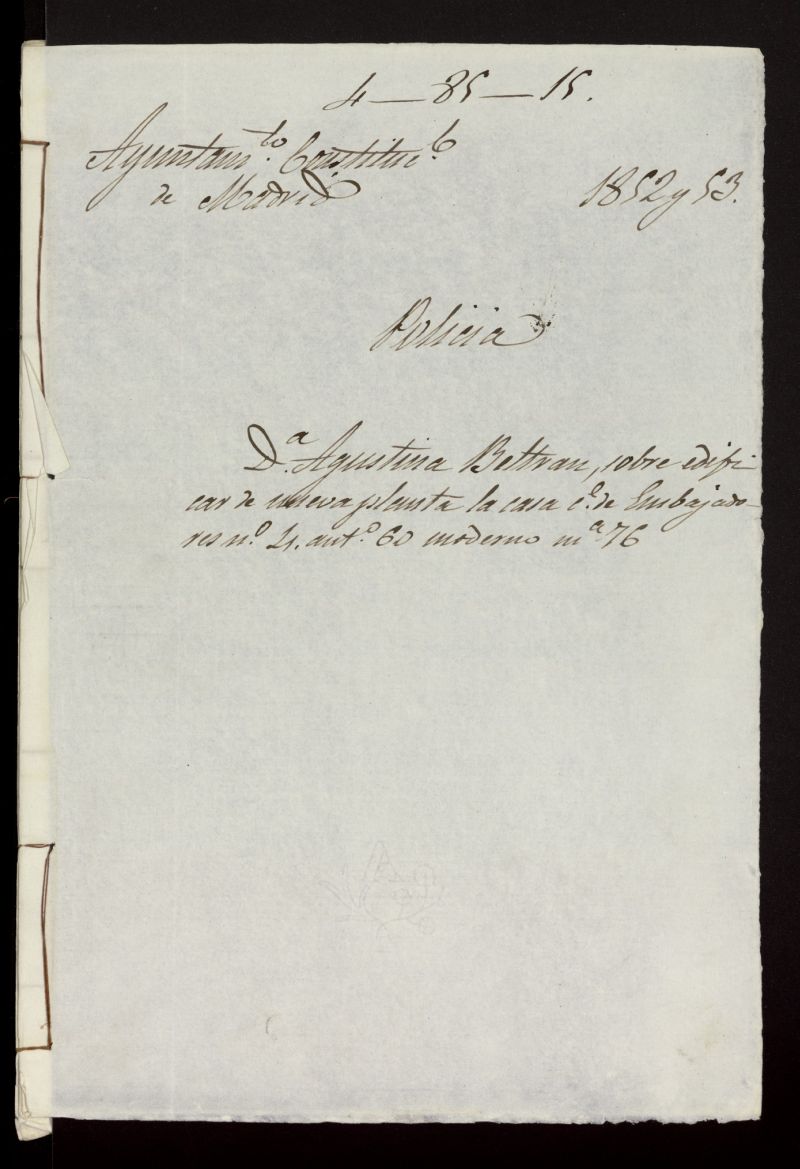 4-85-15.
Ayuntam.to Constituc.l
de Madrid
1852 y 53.
Policia
D.a Agustina Beltran, sobre edifi-
car de nueva planta la casa c.e de Embajado-
res n.o 4. ant.o 60 moderno m.a 76